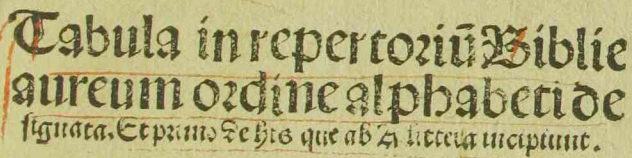 Tabula in repertoriū Biblie
aureum ordine alphabeti de
signata. Et primo de his que ab A littera incipiunt.